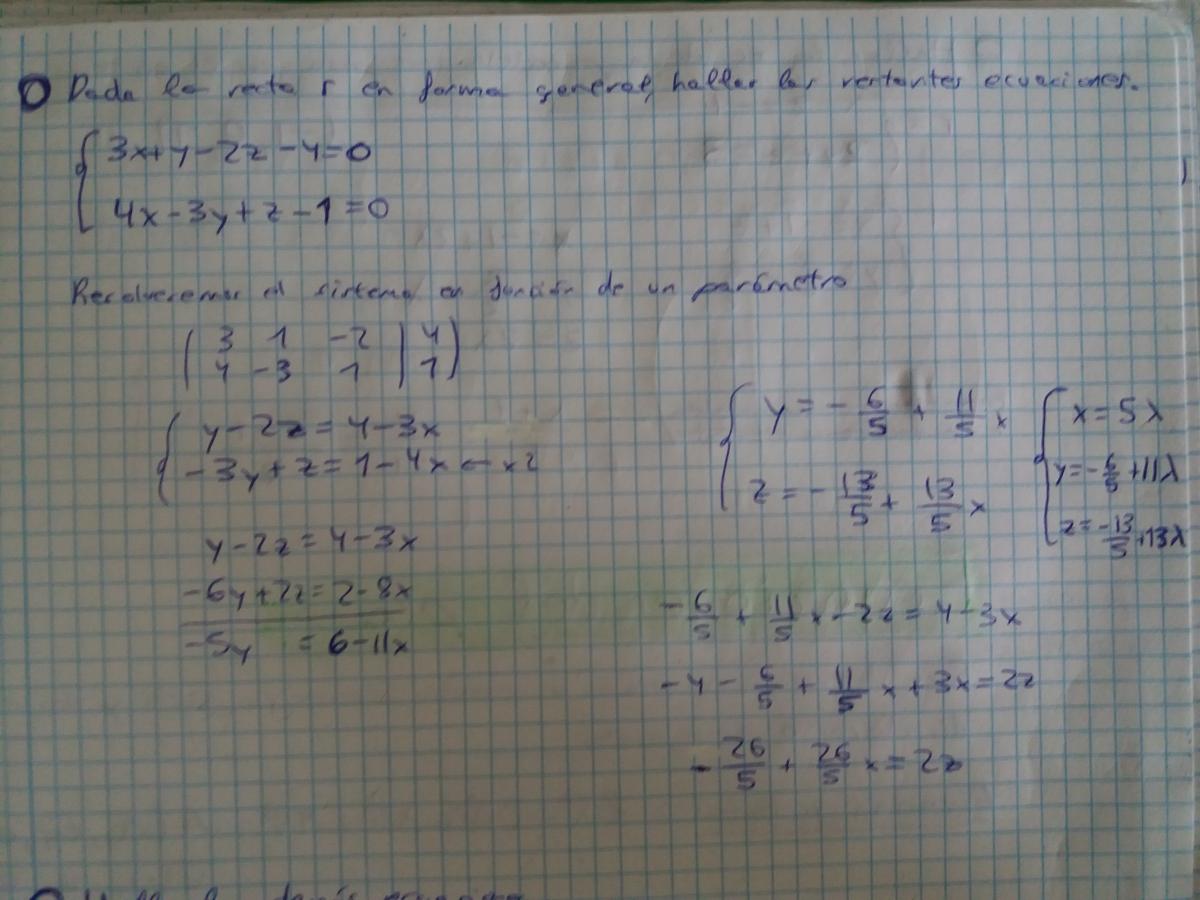 Dada la recta r en forma general, hallar las restantes ecuaciones.
3x+y-2z-4=0
4x-3y+z-1=0
Resolveremos el sistema en función de un parámetro
( 3 1 -2 | 4 )
( 4 -3 1 | 1 )
y-2z=4-3x
-3y+z=1-4x ← x2
y-2z=4-3x
-6y+2z=2-8x
-5y =6-11x
y=-6/5+11/5 x
z=-13/5+13/5 x
x=5λ
y=-6/5+11λ
z=-13/5+13λ
-6/5+11/5 x-2z=4-3x
-4-6/5+11/5 x+3x=2z
-26/5+26/5 x=2z